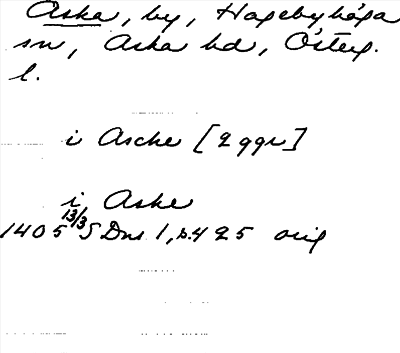 Aska, by, Hagebyhöga
sn, Aska hd, Österg.
l.
i Asche [2 ggr]
i Aske
1405 13/3 SDns 1, s. 425 orig